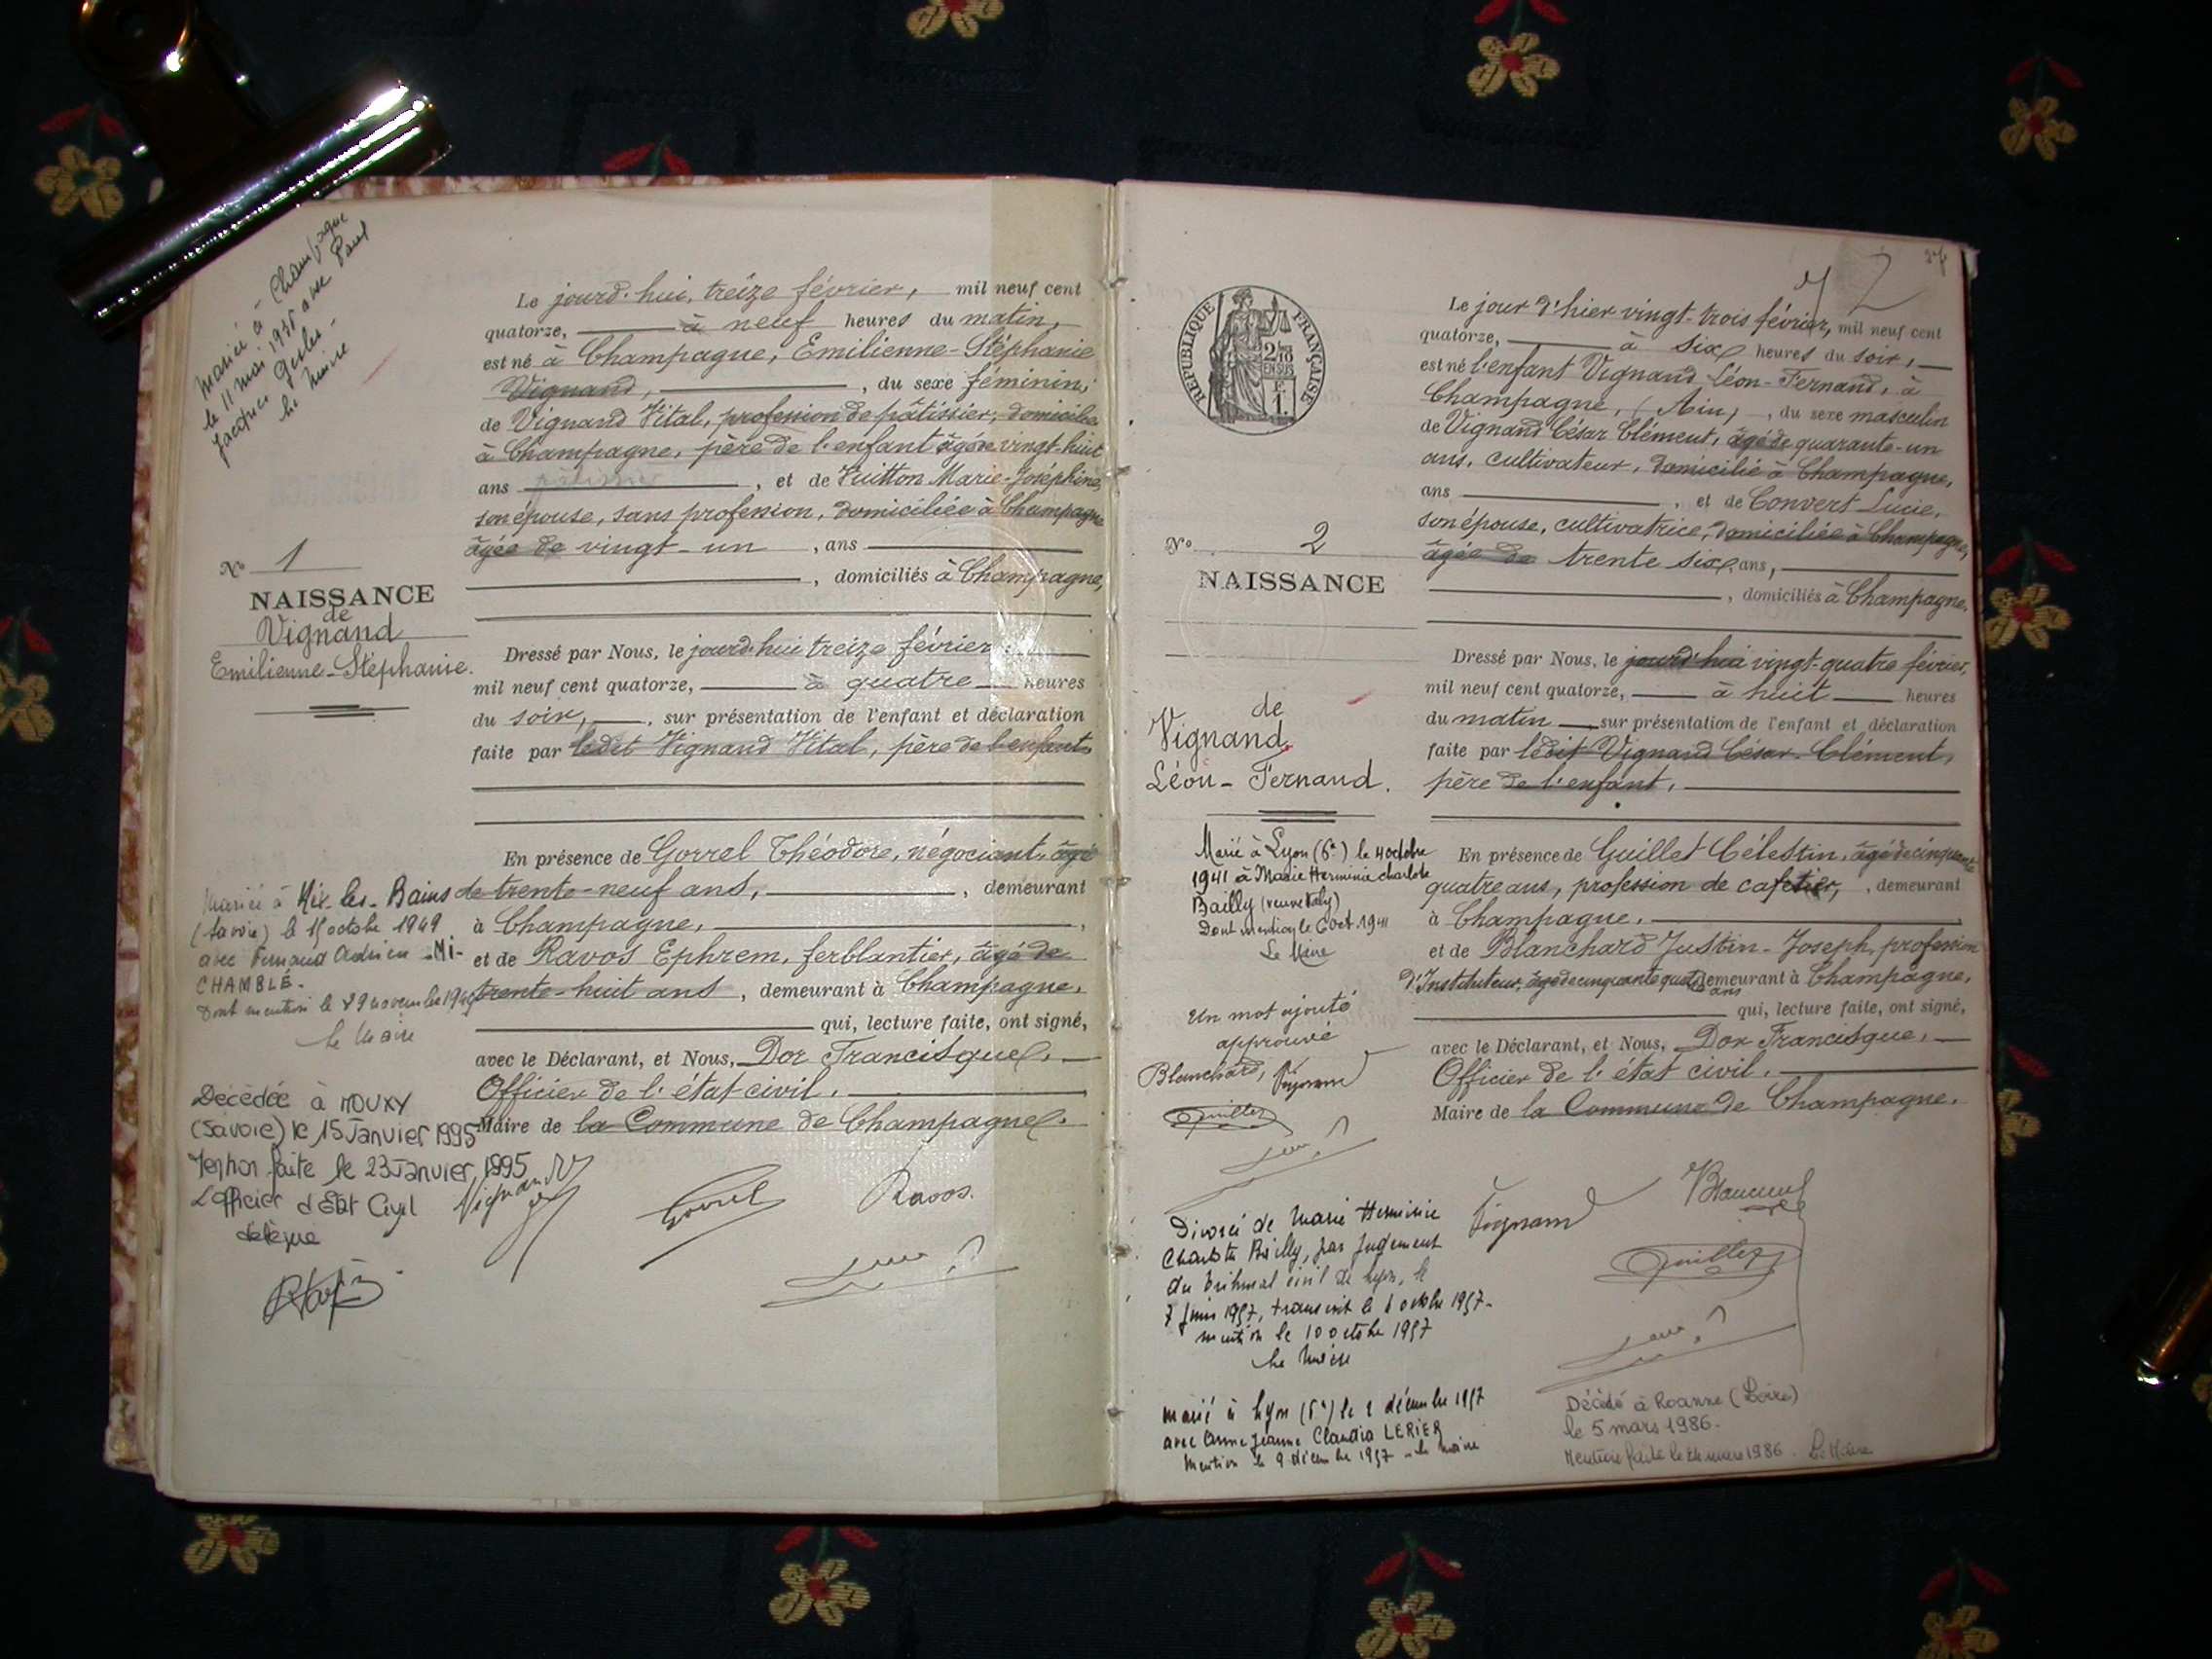 mariée à Champagne
le 11 mai 1935 avec Paul
Jacques
Le Maire
Le jourd'hui, treize février, mil neuf cent
quatorze, à neuf heures du matin,
est né à Champagne, Emilienne-Stéphanie
Vignand, , du sexe féminin;
de Vignand Vital, profession de pâtissier, domicilié
à Champagne, père de l'enfant âgé de vingt-huit
ans pâtissier , et de Vuitton Marie-Joséphine,
son épouse, sans profession, domiciliée à Champagne
âgée de vingt-un , ans
, domiciliés à Champagne,
N° 1
NAISSANCE
de
Vignand
Emilienne-Stéphanie.
Dressé par Nous, le jourd'hui treize février
mil neuf cent quatorze, à quatre heures
du soir, , sur présentation de l'enfant et déclaration
faite par ledit Vignand Vital, père de l'enfant
En présence de Gorrel Théodore, négociant, âgé
de trente-neuf ans, , demeurant
à Champagne,
et de Ravos Ephrem, ferblantier, âgé de
trente-huit ans , demeurant à Champagne,
qui, lecture faite, ont signé,
avec le Déclarant, et Nous, Dor Francisque,
Officier de l'état civil,
Maire de la Commune de Champagne.
Mariée à Aix les-Bains
(Savoie) le 15 octobre 1949
avec Fernand Adrien MI-
CHAMBLÉ.
Dont mention le 29 novembre 1949
Le Maire
Décédée à MOUXY
(Savoie) le 15 Janvier 1995
Mention faite le 23 Janvier 1995
L'officier d'Etat Civil
délégué
Vignand
Gorrel
Ravos
27
2
RÉPUBLIQUE FRANÇAISE
2/10
EN SUS
F.
1.
Le jour d'hier vingt-trois février, mil neuf cent
quatorze, à six heures du soir,
est né l'enfant Vignand Léon-Fernand, à
Champagne, (Ain) , du sexe masculin
de Vignand César Clément, âgé de quarante-un
ans, cultivateur, domicilié à Champagne,
ans , et de Convert Lucie,
son épouse, cultivatrice, domiciliée à Champagne,
âgée de trente six, ans,
, domiciliés à Champagne,
N° 2
NAISSANCE
de
Vignand
Léon-Fernand.
Dressé par Nous, le jourd'hui vingt-quatre février,
mil neuf cent quatorze, à huit heures
du matin sur présentation de l'enfant et déclaration
faite par ledit Vignand César-Clément,
père de l'enfant,
En présence de Guillet Célestin, âgé de cinquante
quatre ans, profession de cafetier, , demeurant
à Champagne,
et de Blanchard Justin-Joseph, profession
d'Instituteur, âgé de cinquante quatre ans demeurant à Champagne,
qui, lecture faite, ont signé,
avec le Déclarant, et Nous, Dor Francisque,
Officier de l'état civil,
Maire de la Commune de Champagne.
Marié à Lyon (6e) le 4 octobre
1941 à Marie Herminie charlotte
Bailly (veuve Valy)
Dont mention le 6 oct. 1941
Le Maire
Un mot ajouté
approuvé
Blanchard, Vignand
Guillet
Vignand
Blanchard
Guillet
Divorcé de Marie Herminie
Charlotte Bailly, par Jugement
du Tribunal civil de Lyon, le
7 Juin 1957, transcrit le 1 octobre 1957-
mention le 10 octobre 1957
Le Maire
Marié à Lyon (6e) le 2 décembre 1957
avec Anne Jeanne Claudia LERIER
Mention le 9 décembre 1957 - le maire
Décédé à Roanne (Loire)
le 5 mars 1986.
Mention faite le 24 mars 1986. Le Maire